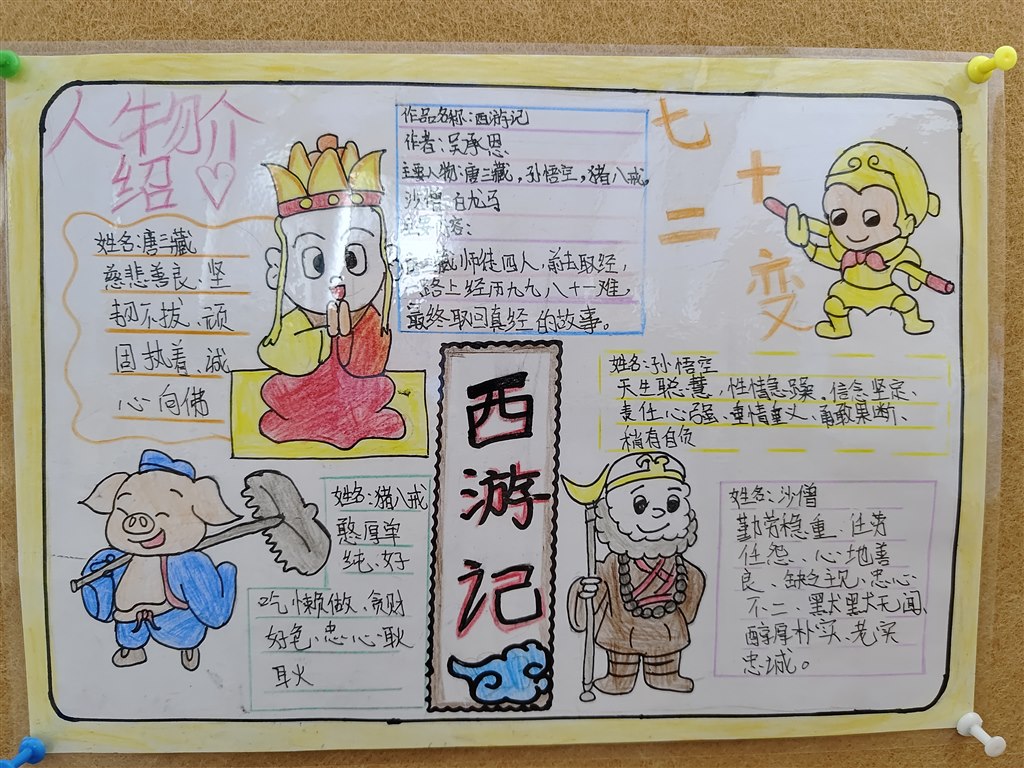 人物介
绍
姓名:唐三藏
慈悲善良、坚
韧不拔、顽
固执着、诚
心向佛
作品名称:西游记
作者:吴承恩
主要人物:唐三藏,孙悟空,猪八戒,
沙僧,白龙马
主要内容:
藏师徒四人,前去取经,
一路上经历九九八十一难,
最终取回真经的故事。
七
十
二
变
姓名:孙悟空
天生聪慧,性情急躁、信念坚定、
责任心强、重情重义、勇敢果断、
稍有自负
西
游
记
姓名:猪八戒
憨厚单
纯、好
吃懒做、贪财
好色、忠心耿
耿
姓名:沙僧
勤劳稳重、任劳
任怨、心地善
良、缺乏主见、忠心
不二、默默无闻、
醇厚朴实、老实
忠诚。